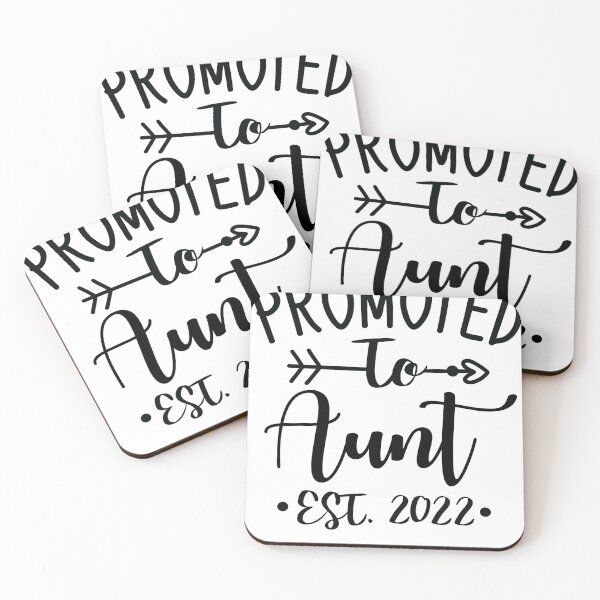 PROMOTED
To
PROMOTED
To
Aunt
PROMOTED
To
Aunt
• EST.
PROMOTED
To
Aunt
• EST. 2022 •